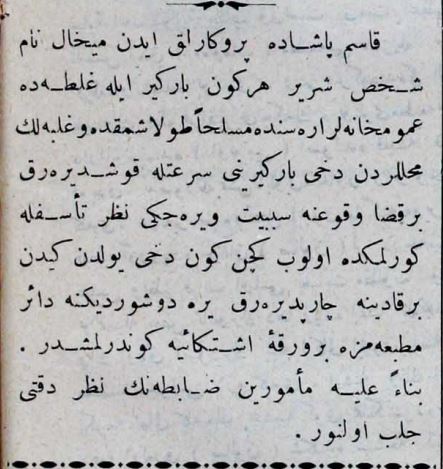 قاسم پاشاده پروكارلق ايدن ميخال نام
شخص شرير هركون باركير ايله غلطه‌ده
عمومخانه‌لر اره‌سنده مسلحاً طولاشمقده وغلبه‌لك
محللردن دخى باركيرينى سرعتله قوشديره‌رق
برقضا وقوعنه سببيت ويره‌جكى نظر تأسفله
كورلمكده اولوب كچن كون دخى يولدن كيدن
برقادينه چارپديره‌رق يره دوشورديكنه دائر
مطبعه‌مزه برورقۀ اشتكائيه كوندرلمشدر .
بناءً عليه مأمورين ضابطه‌نك نظر دقتى
جلب اولنور .